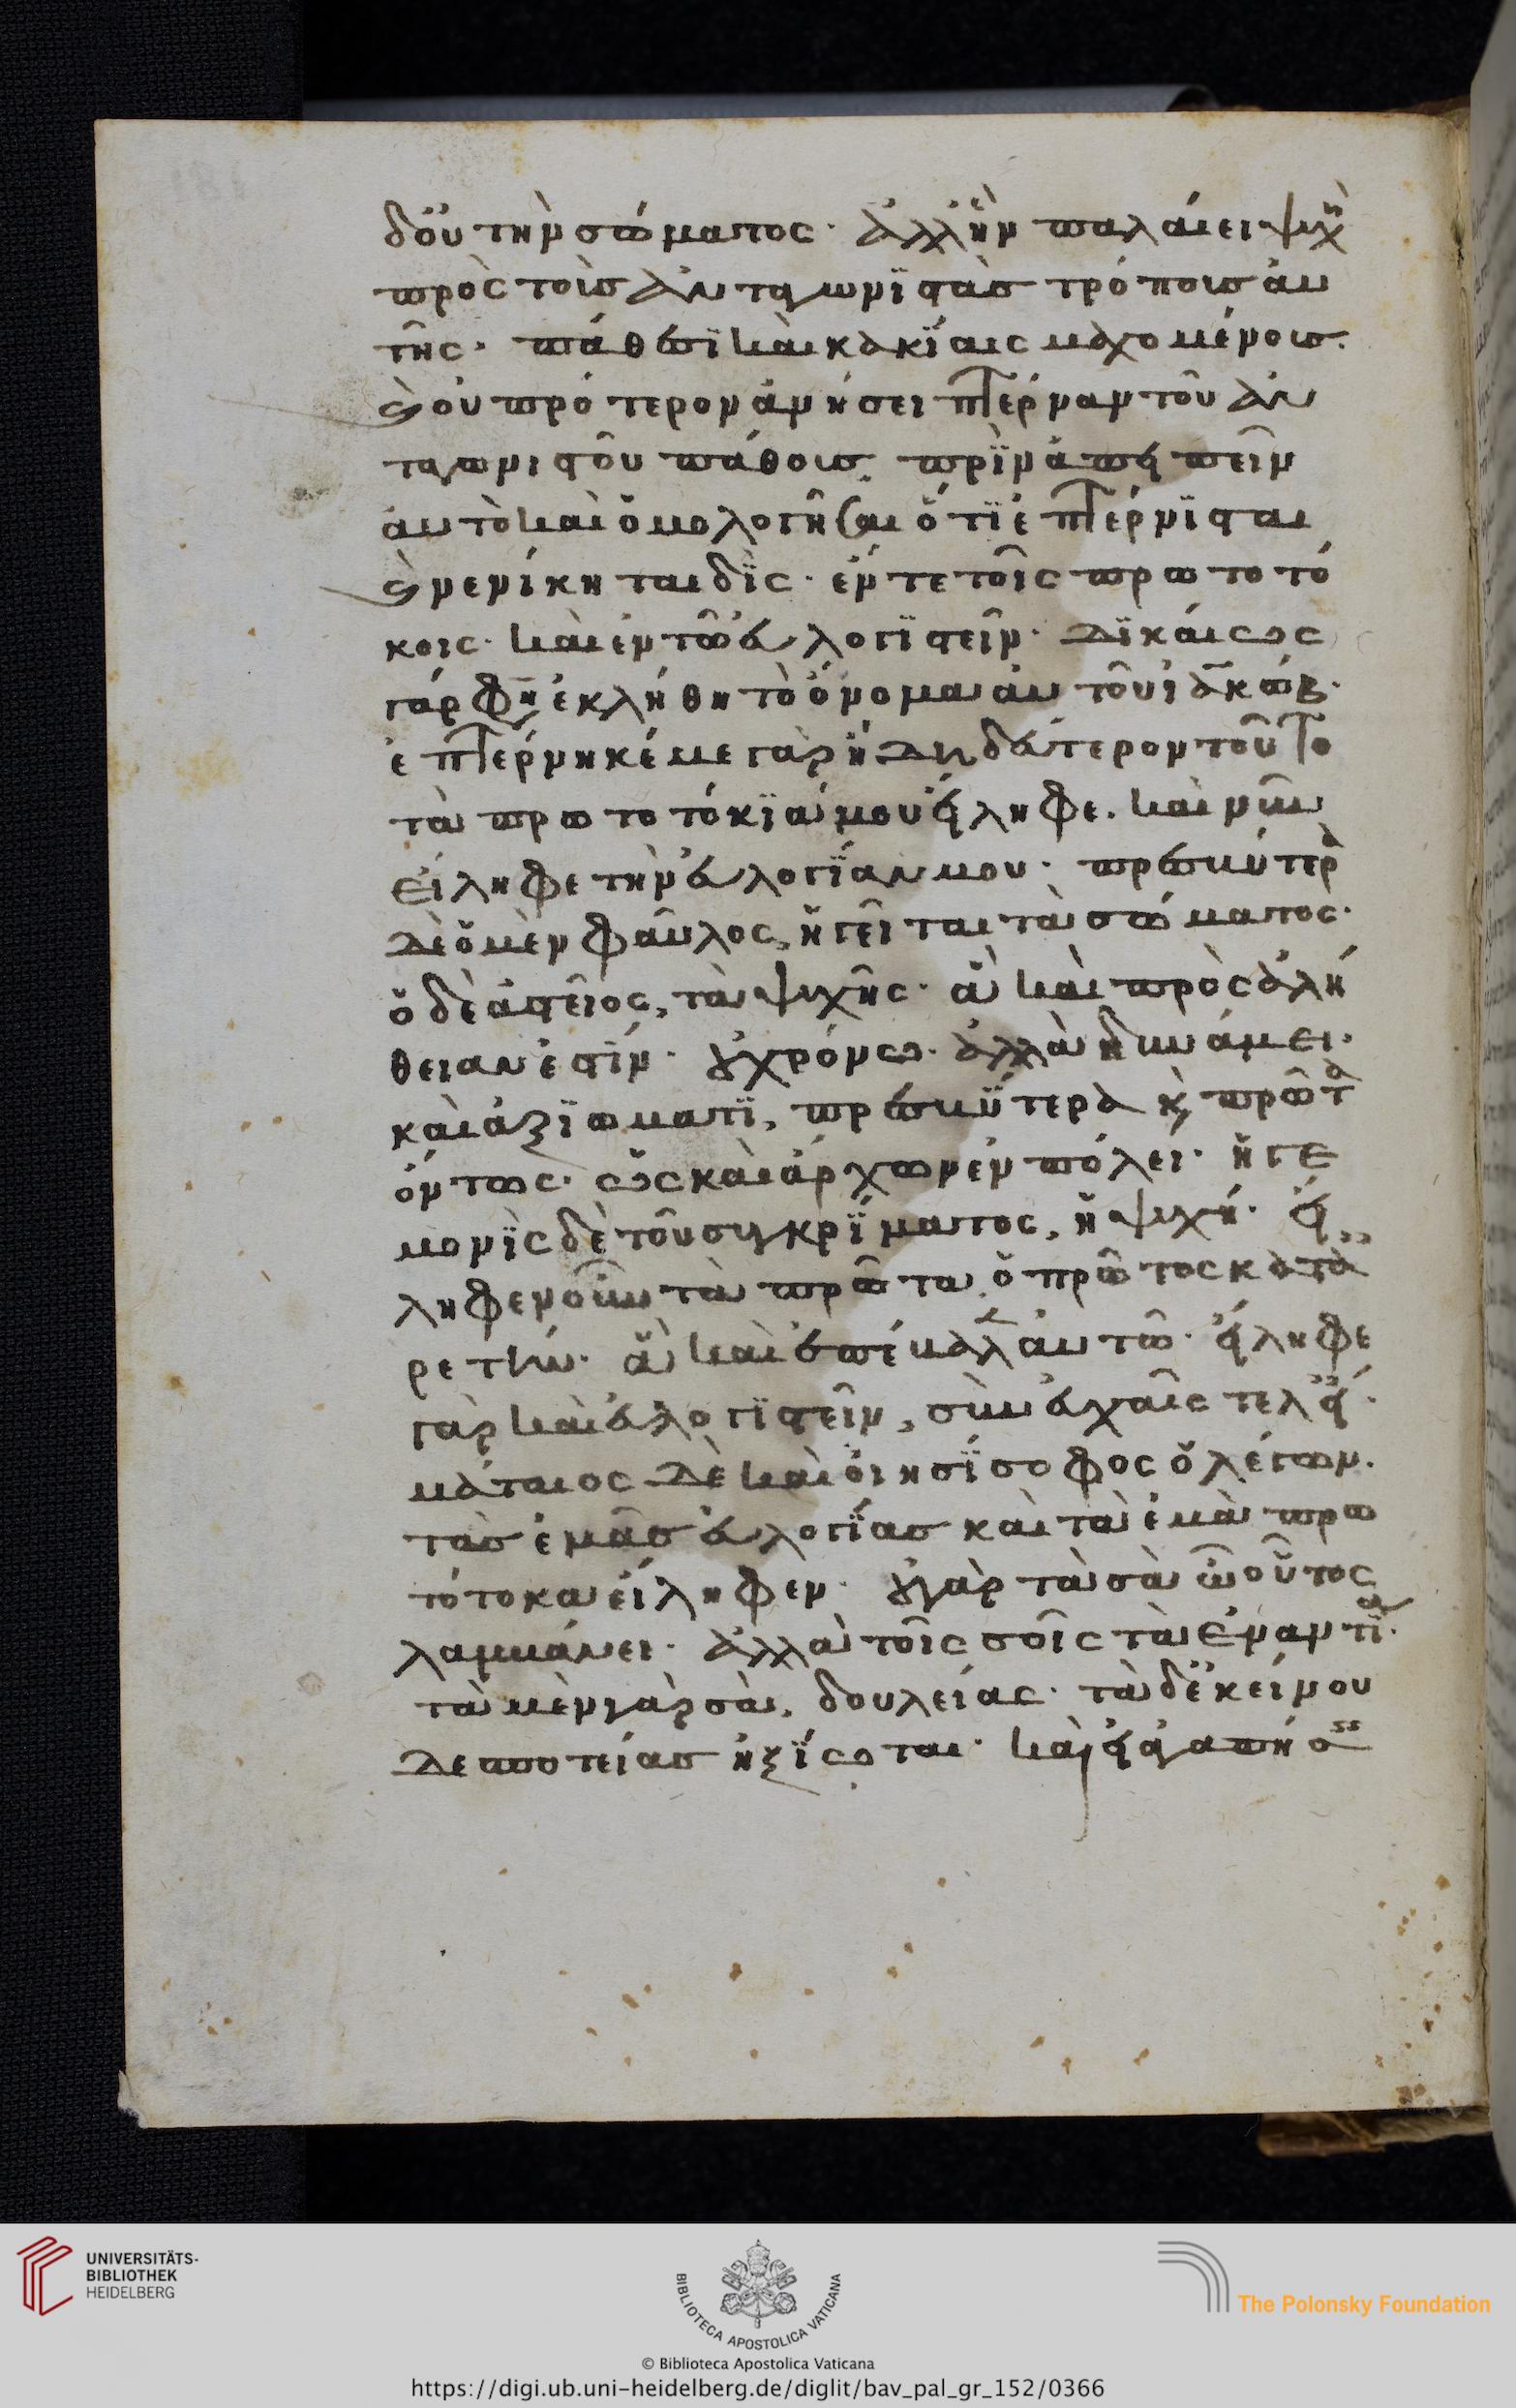 δὀυ τὴν σώματος· ἀλλ' ἣν παλαίει ψυχὴ
πρὸς τοὺς ἀνταγωνιστὰς τρόπους αὐ
τῆς· πάθεσι καὶ κακίαις μαχομένους.
ὃς οὐ πρότερον ἀνήσει πτέρναν τοῦ ἀν
ταγωνιστοῦ πάθους, πρὶν ἀπειπεῖν
αὐτὸ καὶ ὁμολογῆσαι ὅτι ἐπτέρνισται
ς νενίκηται δὶς· ἔν τε τοῖς πρωτοτό
κοις· καὶ ἐν τῶ εὐλογιστεῖν· δικαίως
γάρ φησιν ἐκλήθη τὸ ὄνομα αὐτοῦ ἰακώβ·
ἐπτέρνηκέ με γὰρ ἤδη δεύτερον τοῦτο
τὰ πρωτοτόκιά μου εἴληφε. καὶ νῦν
εἴληφε τὴν εὐλογίαν μου· πρεσβύτερα
δὲ ὁ μὲν φαῦλος, ἡγεῖται τὰ σώματος·
ὁ δὲ ἀστεῖος, τὰ ψυχῆς· ἃ καὶ πρὸς ἀλή
θειάν ἐστιν· οὐ χρόνω· ἀλλὰ δυνάμει·
καὶ ἀξιώματι, πρεσβύτερα κ πρῶτα
ὄντως· ὡς καὶ ἄρχων ἐν πόλει· ἡγε
μονὶς δὲ τοῦ συγκρίματος, ἡ ψυχή· εἴ
ληφεν οὖν τὰ πρῶτα, ὁ πρῶτος κατὰ
ρετήν· ἃ καὶ ἐπέβαλ αὐτῶ· εἴληφε
γὰρ καὶ εὐλογιστεῖν, σὺν εὐχαῖς τελεί·
μάταιος δὲ καὶ οἰησίσοφος ὁ λέγων.
τὰς ἐμὰς εὐλογίας καὶ τὰ ἐμὰ πρω
τότοκα εἴληφεν· οὐ γὰρ τὰ σὰ ὦ οὗτος
λαμβάνει· ἀλλὰ τοῖς σοῖς τὰ ἐναντία·
τὰ μὲν γὰρ σὰ, δουλείας· τὰ δ' ἐκείνου
δεσποτείας ἠξίωται· καὶ εἰ ἀγαπήσ
UNIVERSITÄTS-
BIBLIOTHEK
HEIDELBERG
BIBLIOTECA APOSTOLICA VATICANA
The Polonsky Foundation
© Biblioteca Apostolica Vaticana
https://digi.ub.uni-heidelberg.de/diglit/bav_pal_gr_152/0366